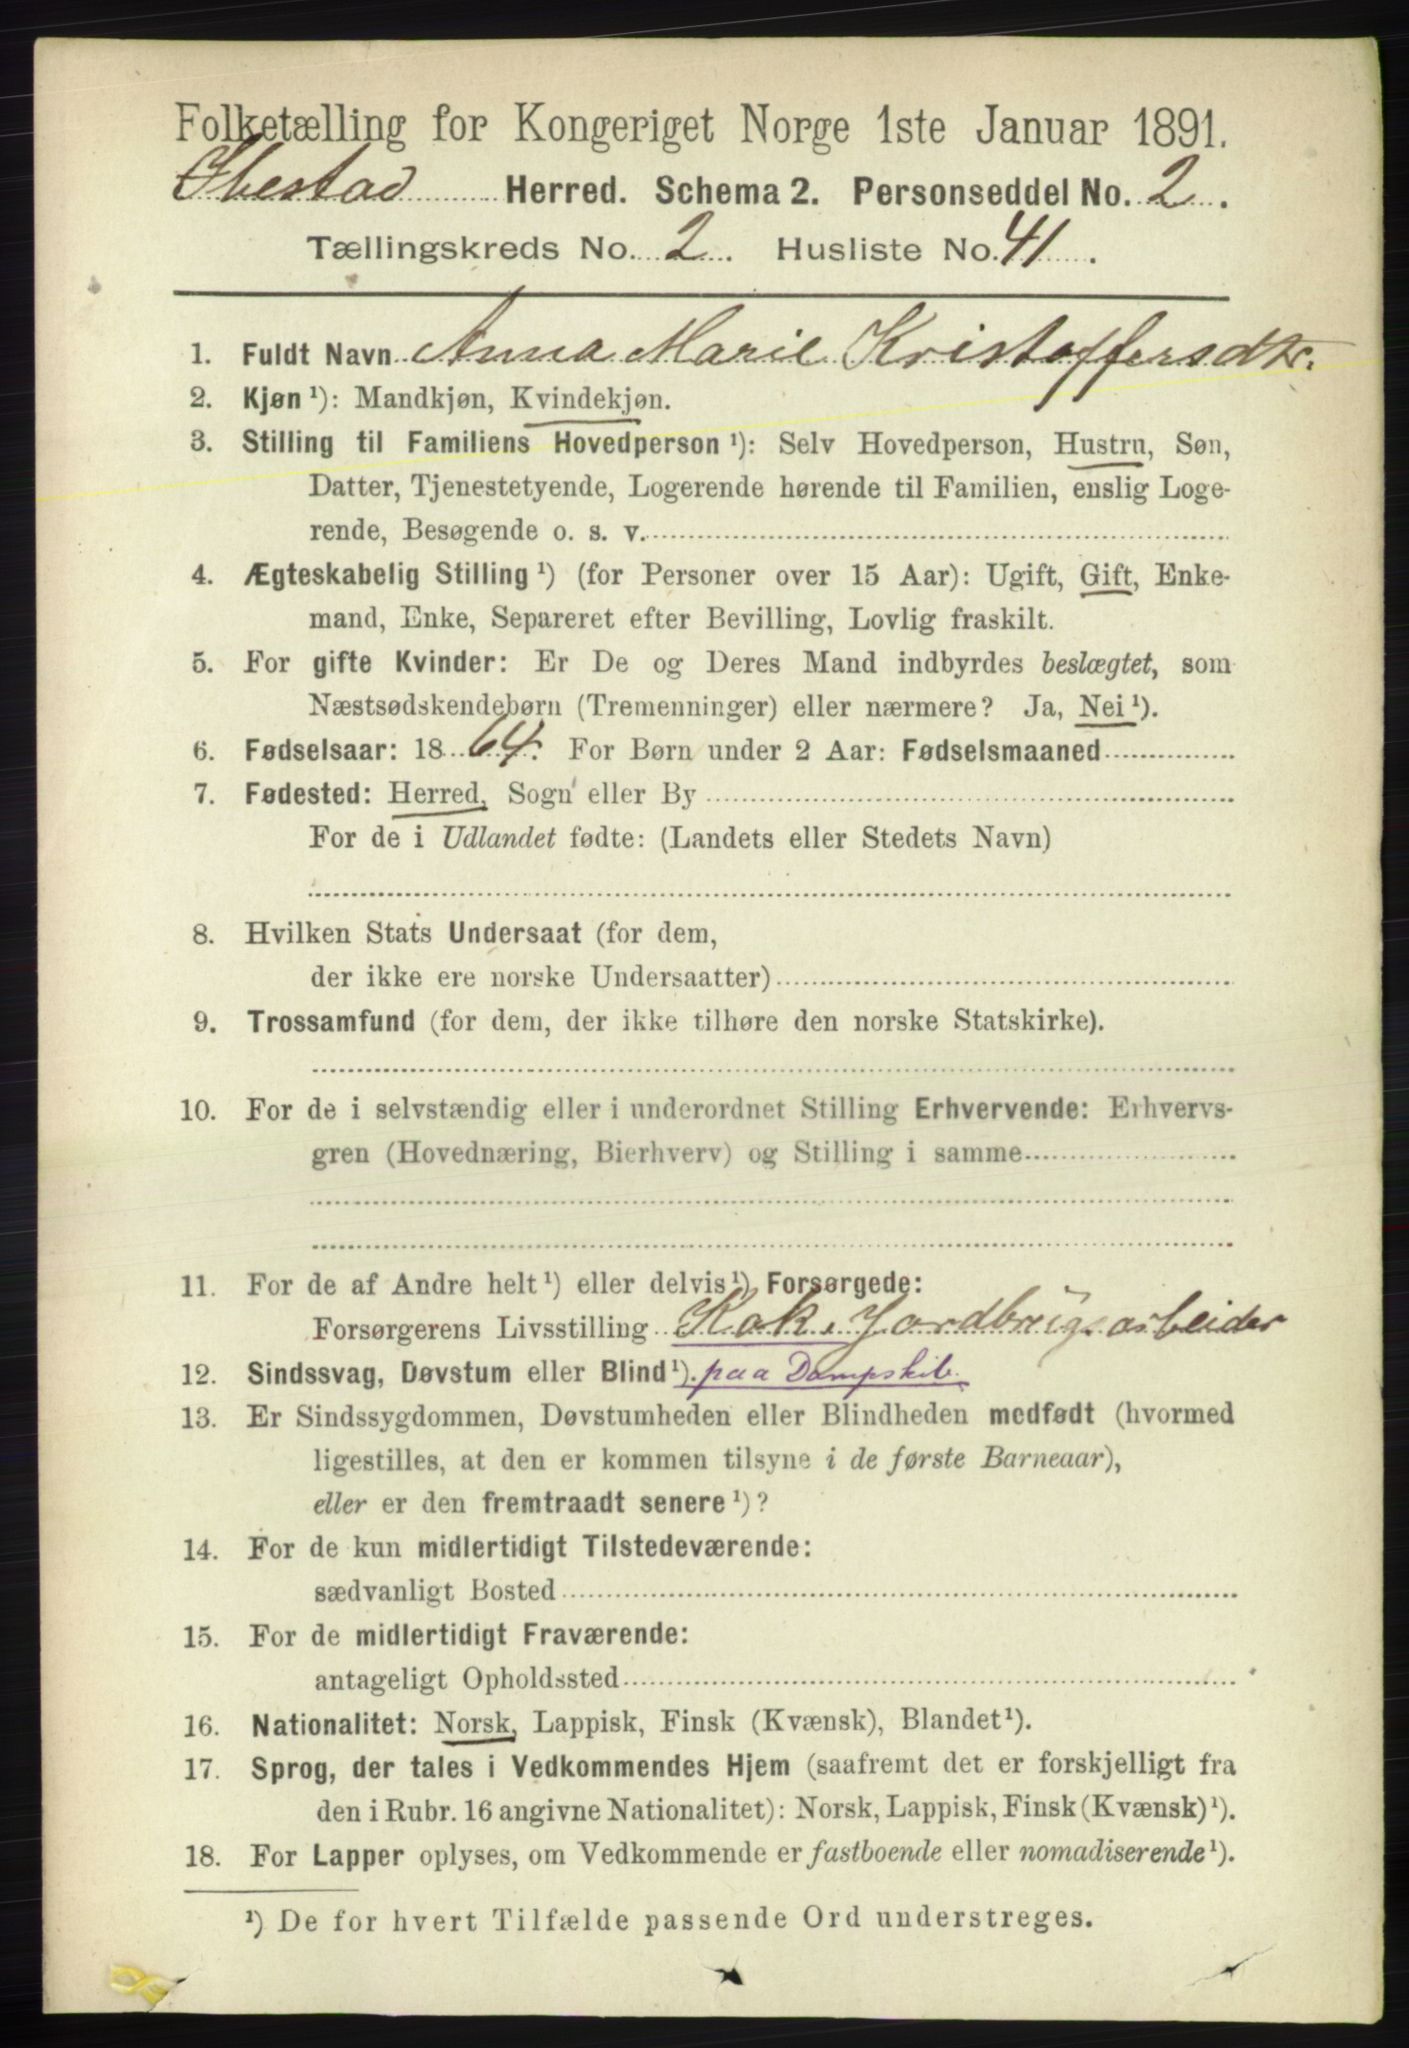 Folketælling for Kongeriget Norge 1ste Januar 1891.
Ibestad Herred. Schema 2. Personseddel No. 2.
Tællingskreds No. 2. Husliste No. 41.
1. Fuldt Navn Anna Marie Kristoffersdtr.
2. Kjøn ¹): Mandkjøn, Kvindekjøn.
3. Stilling til Familiens Hovedperson ¹): Selv Hovedperson, Hustru, Søn,
Datter, Tjenestetyende, Logerende hørende til Familien, enslig Loge-
rende, Besøgende o. s. v.
4. Ægteskabelig Stilling ¹) (for Personer over 15 Aar): Ugift, Gift, Enke-
mand, Enke, Separeret efter Bevilling, Lovlig fraskilt.
5. For gifte Kvinder: Er De og Deres Mand indbyrdes beslægtet, som
Næstsødskendebørn (Tremenninger) eller nærmere? Ja, Nei ¹).
6. Fødselsaar: 18 64. For Børn under 2 Aar: Fødselsmaaned
7. Fødested: Herred, Sogn eller By
For de i Udlandet fødte: (Landets eller Stedets Navn)
8. Hvilken Stats Undersaat (for dem,
der ikke ere norske Undersaatter)
9. Trossamfund (for dem, der ikke tilhøre den norske Statskirke).
10. For de i selvstændig eller i underordnet Stilling Erhvervende: Erhvervs-
gren (Hovednæring, Bierhverv) og Stilling i samme
11. For de af Andre helt ¹) eller delvis ¹) Forsørgede:
Forsørgerens Livsstilling Kok, Jordbrugsarbeider
12. Sindssvag, Døvstum eller Blind ¹). paa Dampskib.
13. Er Sindssygdommen, Døvstumheden eller Blindheden medfødt (hvormed
ligestilles, at den er kommen tilsyne i de første Barneaar),
eller er den fremtraadt senere ¹)?
14. For de kun midlertidigt Tilstedeværende:
sædvanligt Bosted
15. For de midlertidigt Fraværende:
antageligt Opholdssted
16. Nationalitet: Norsk, Lappisk, Finsk (Kvænsk), Blandet ¹).
17. Sprog, der tales i Vedkommendes Hjem (saafremt det er forskjelligt fra
den i Rubr. 16 angivne Nationalitet): Norsk, Lappisk, Finsk (Kvænsk) ¹).
18. For Lapper oplyses, om Vedkommende er fastboende eller nomadiserende ¹).
¹) De for hvert Tilfælde passende Ord understreges.